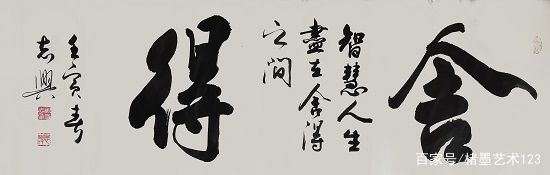 舍
智慧人生
盡在舍得
之间
得
壬寅春
志興
百家号/精墨艺术123